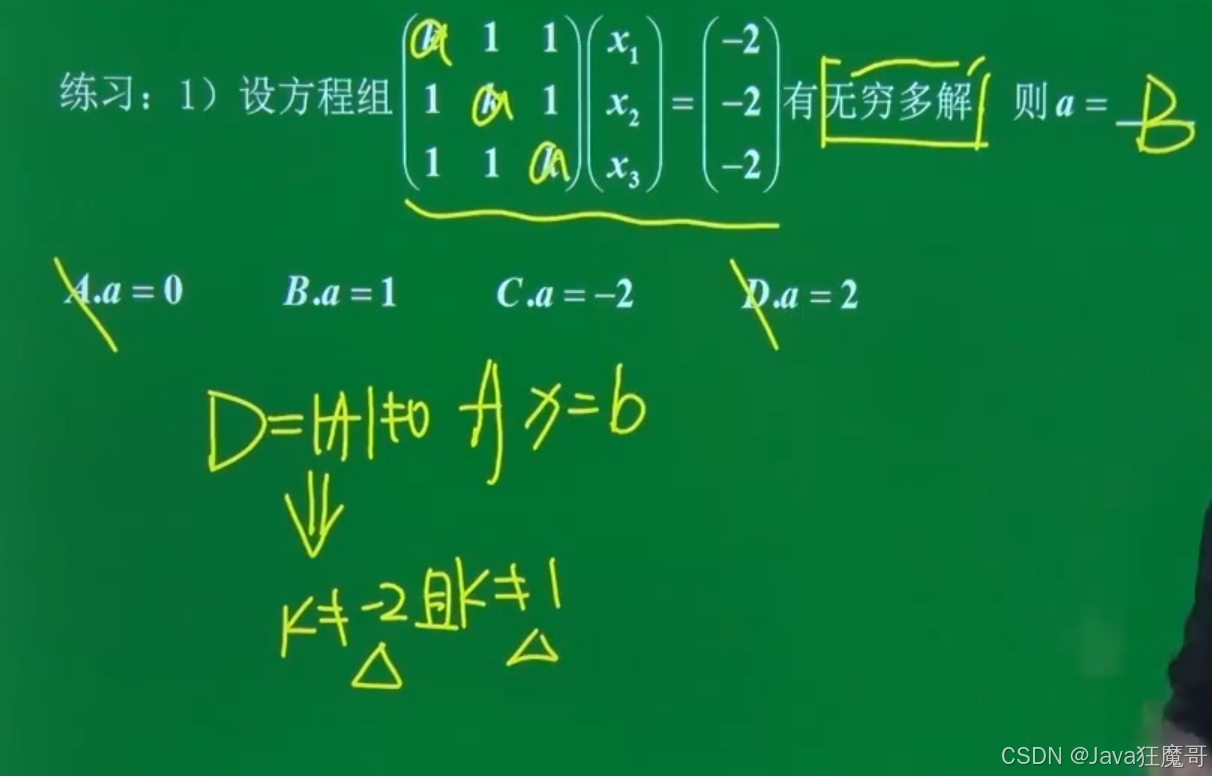 练习：1）设方程组 (a 1 1 / 1 a 1 / 1 1 a) (x₁ / x₂ / x₃) = (−2 / −2 / −2) 有无穷多解 则 a = B
A.a = 0 B.a = 1 C.a = −2 D.a = 2
D=|A|≠0 Ax=b
⇓
K≠-2且K≠1
△ △
CSDN @Java狂魔哥